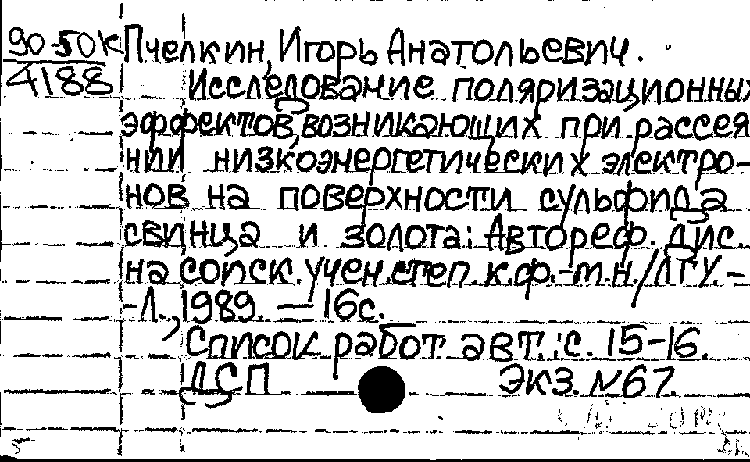 90-50К Пчелкин, Игорь Анатольевич.
4188 Исследование поляризационных
эффектов, возникающих при рассея-
нии низкоэнергетических электро-
нов на поверхности сульфида
свинца и золота: Автореф. дис.
на соиск. учен. степ. к.ф.-м.н./ЛГУ. -
-Л., 1989. — 16с.
Список работ авт.: с. 15-16.
ДСП Экз. №67